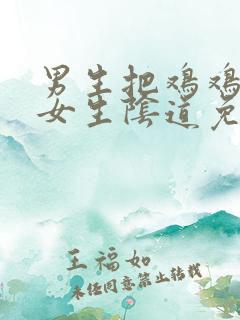 男生把鸡鸡
女生陰道免
王福如
未经同意禁止转载